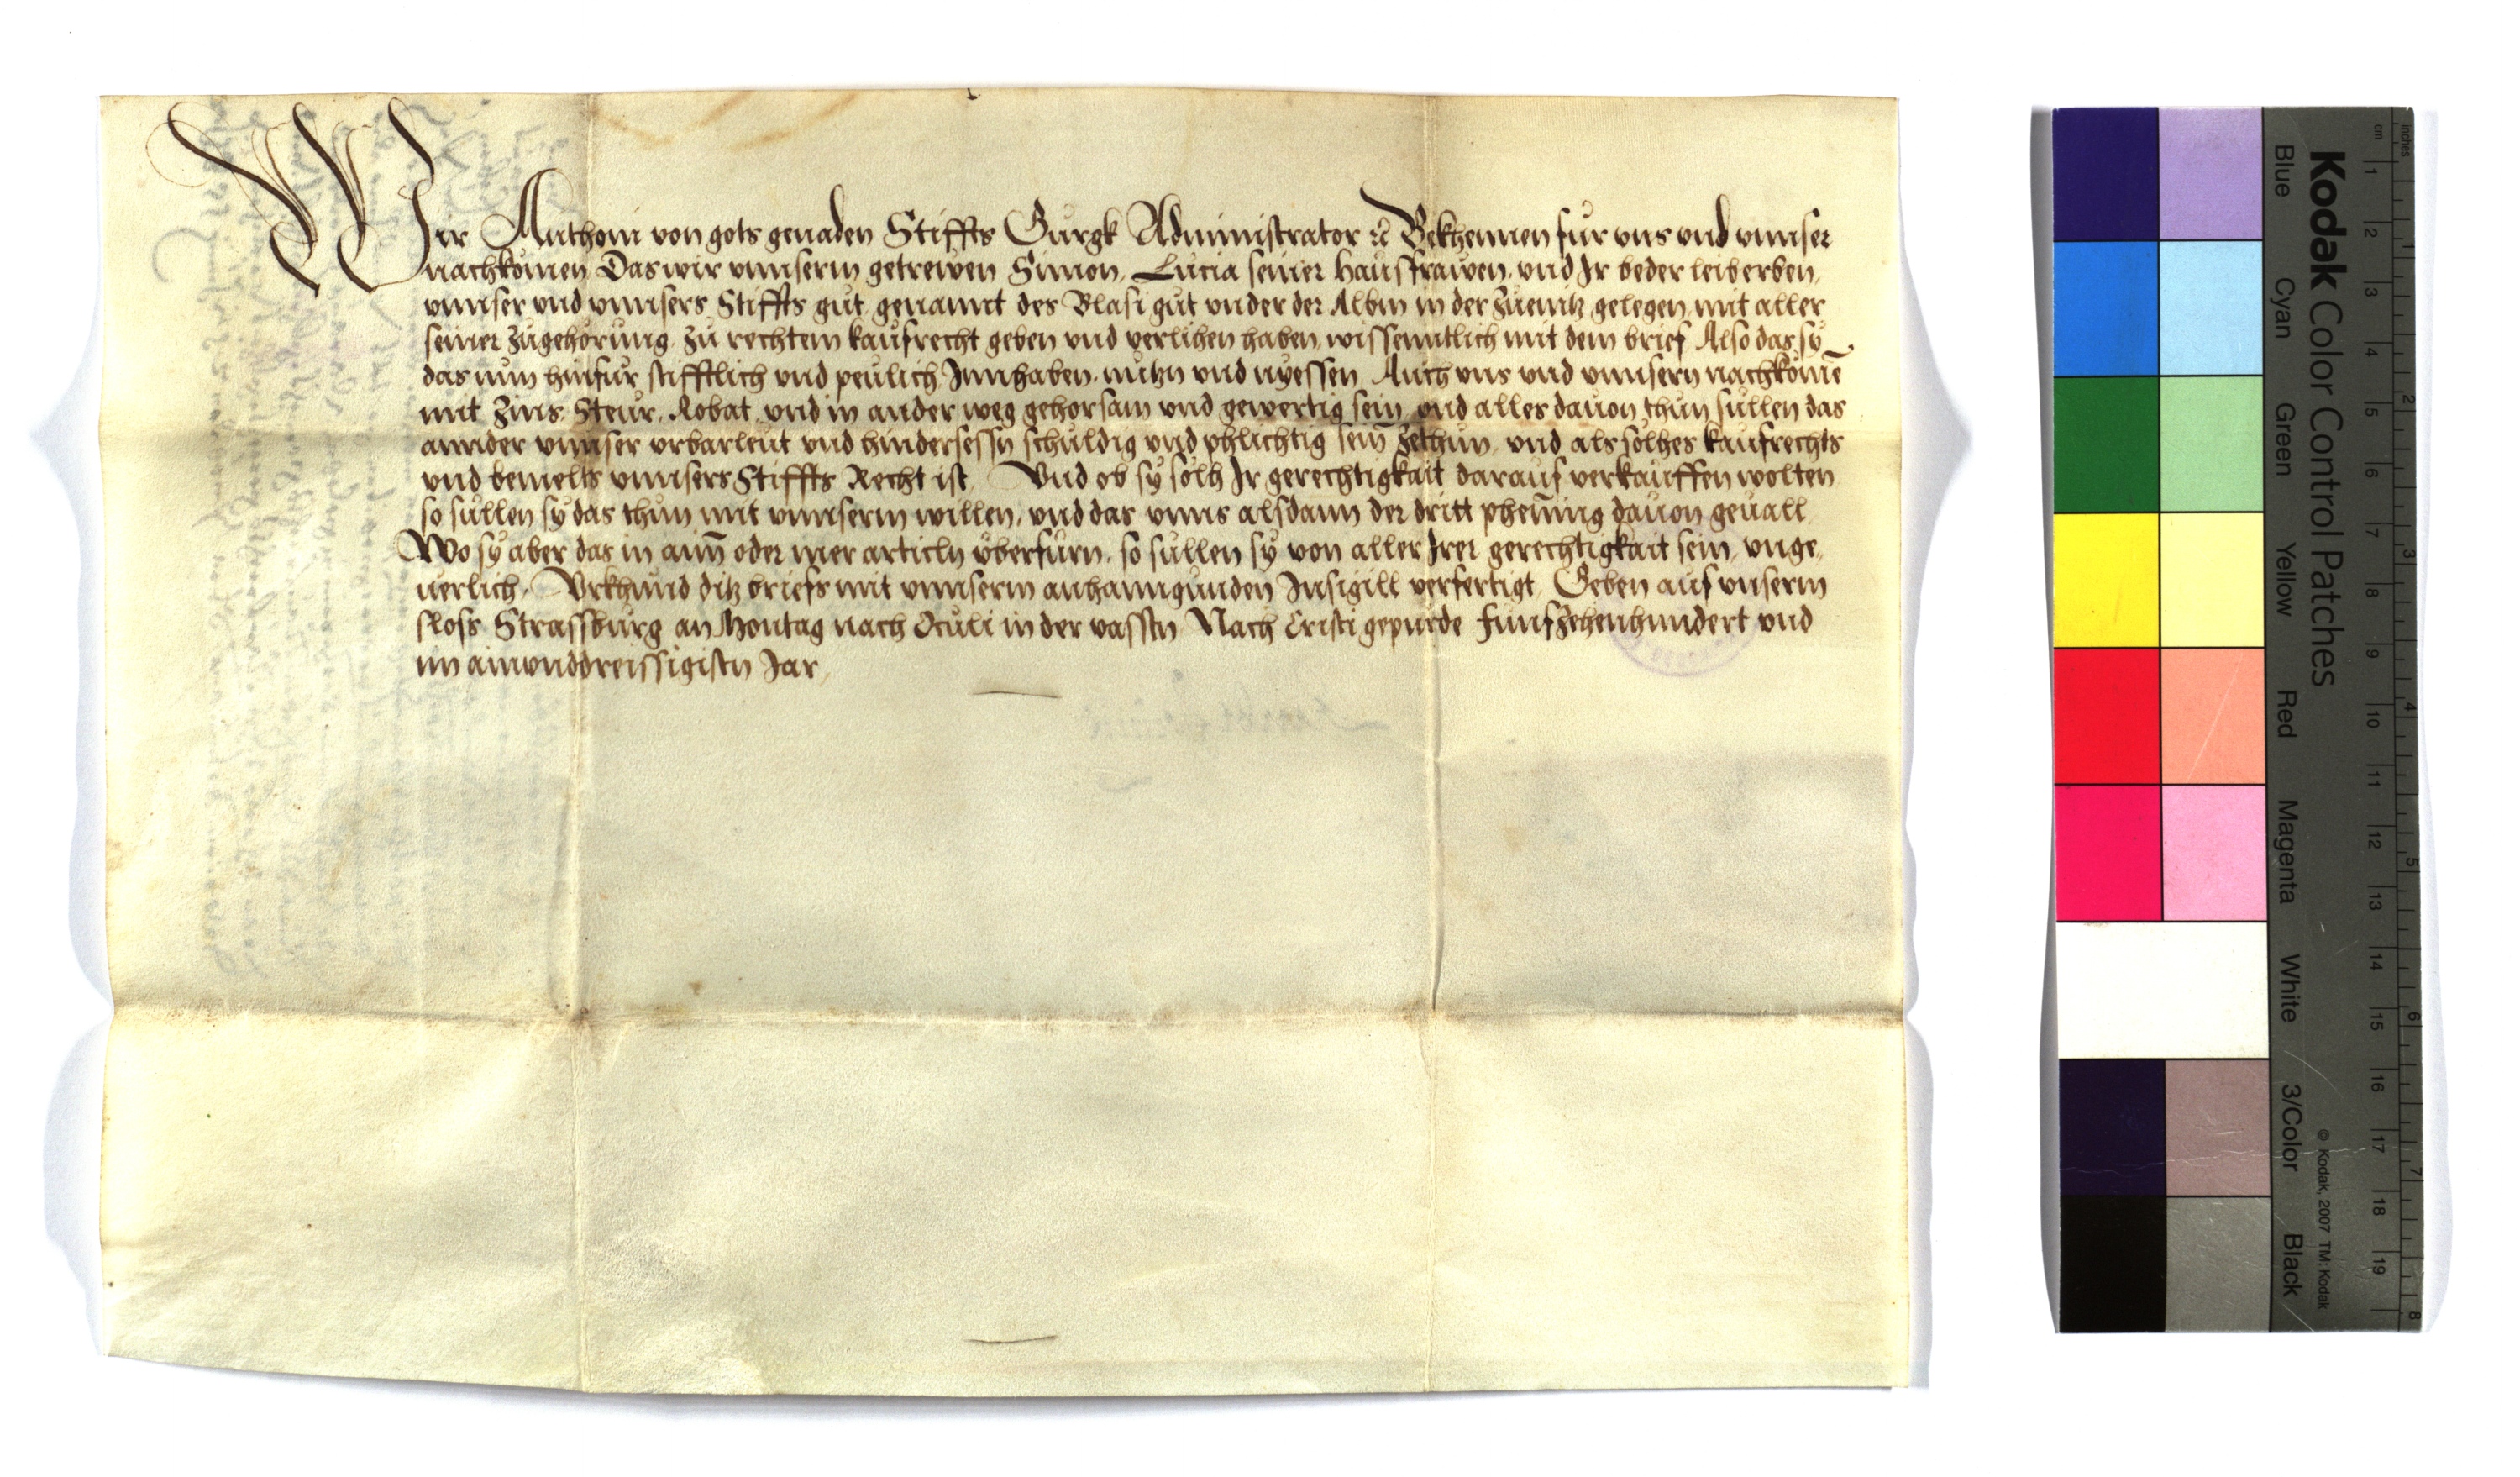 Wir Anthoni von gots genaden Stiffts Gurgk Administrator ꝛc Bekhennen fur vns vnd vnnser
nachkomen Das wir vnnserm getrewen Simon, Lucia seiner hausfrawen, vnd Ir beder leiberben,
vnnser vnd vnnsers Stiffts gůt, genannt des Blasi gůt vnder der Albm in der gelegen, mit aller
seiner zůgehorung, zů rechtem kaufrecht geben vnd verlihen haben, wissenntlich mit dem brief Also das sy
das nun hinfur, stifftlich vnd peulich Innhaben, nutzn vnd nyessen Auch vns vnd vnnsern nachkome͂
mit Zins, Steur, Robat, vnd in ander weg gehorsam vnd gewertig sein, vnd alles dauon thun sullen das
annder vnnser vrbarleut vnd hindersessn schuldig vnd phlichtig sein zethun, vnd als solhes kaufrechts
vnd bemelts vnnsers Stiffts Recht ist, Vnd ob sy solh Ir gerechtigkait darauf verkauffen wolten
so sullen sy das thun mit vnnserm willen, vnd das vnns alsdann der dritt phening dauon geuall,
Wo sy aber das in aim oder mer articln vberfurn, so sullen sy von aller Irer gerechtigkait sein, vnge,
uerlich, Vrkhund ditz briefs mit vnnserm anhanngunden Insigill verfertigt, Geben auf vnserm
sloss Strassburg an Montag nach Oculi in der vasstn Nach Cristi gepurde funfzehenhundert vnd
im ainvnddreissigistn Jar,
Kodak Color Control Patches
Blue Cyan Green Yellow Red Magenta White 3/Color Black
© Kodak, 2007 TM: Kodak
cm 1 2 3 4 5 6 7 8 9 10 11 12 13 14 15 16 17 18 19
inches 1 2 3 4 5 6 7 8